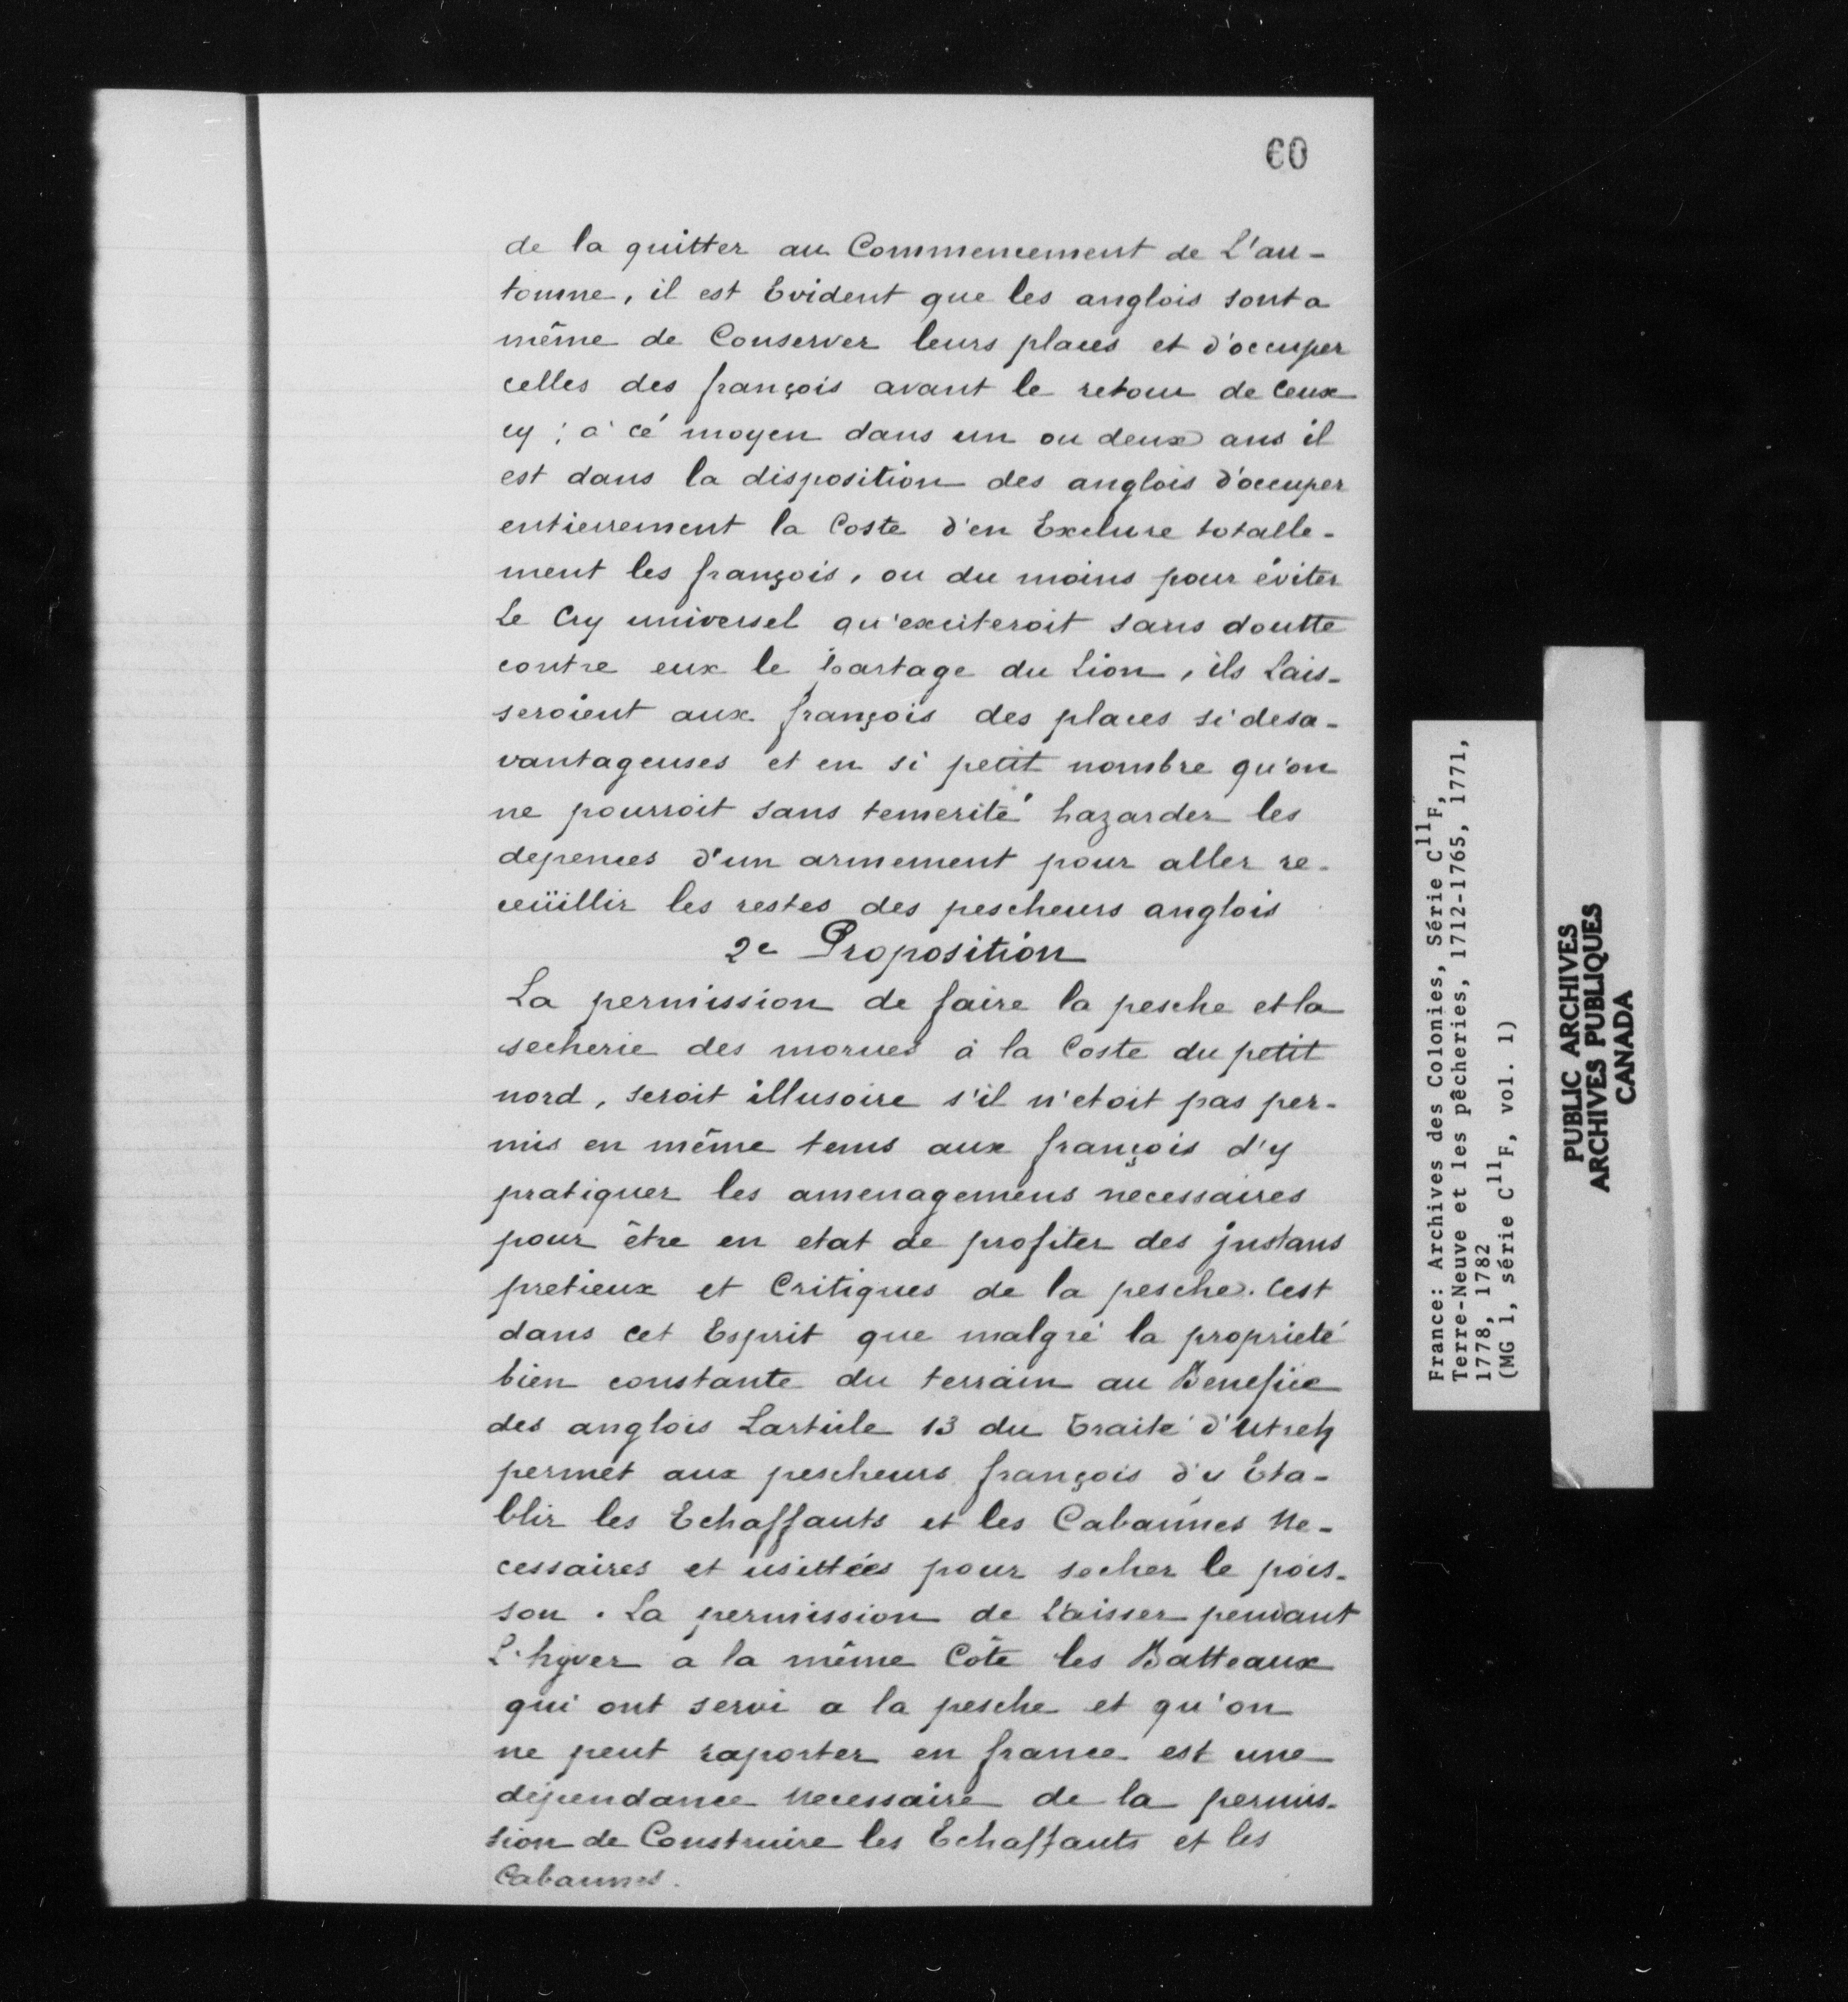 60
de la quitter au Commencement de L'au-
tomne, il est Evident que les anglois sont a
même de Conserver leurs places et d'occuper
celles des françois avant le retour de Ceux
cy; à cé moyen dans un ou deux ans il
est dans la disposition des anglois d'occuper
entierrement la Coste d'en Exclure totalle-
ment les françois, ou du moins pour éviter
Le Cry universel qu'exciteroit sans doutte
contre eux le partage du Lion, ils Lais-
seroient aux françois des places si desa-
vantageuses et en si petit nombre qu'on
ne pourroit sans temerité hazarder les
depences d'un armement pour aller re-
ceüillir les restes des pescheurs anglois
2e Proposition
La permission de faire la pesche et la
secherie des morues à la Coste du petit
nord, seroit illusoire s'il n'etoit pas per-
mis en même tems aux françois d'y
pratiquer les amenagemens necessaires
pour être en etat de profiter des jnstans
pretieux et Critiques de la pesche. Cest
dans cet Esprit que malgré la proprieté
bien constante du terrain au Benefice
des anglois Larticle 13 du Traité d'Utreh
permet aux pescheurs françois d'y Eta-
blir les Echaffauts et les Cabannes Ne-
cessaires et usittées pour secher le pois-
son. La permission de Laisser pendant
L'hyver a la même Côte les Batteaux
qui ont servi a la pesche et qu'on
ne peut raporter en france est une
dépendance Necessaire de la permis-
sion de Construire les Echaffauts et les
Cabannes.
France: Archives des Colonies, Série C11F,
Terre-Neuve et les pêcheries, 1712-1765, 1771,
1778, 1782
(MG 1, série C11F, vol. 1)
PUBLIC ARCHIVES
ARCHIVES PUBLIQUES
CANADA